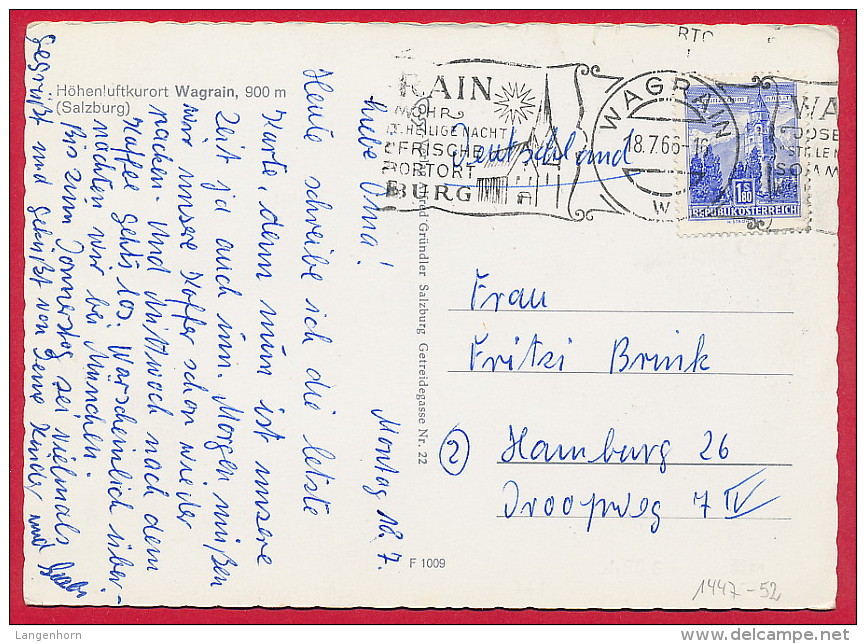 Höhenluftkurort Wagrain, 900 m
(Salzburg)
Montag 18.7.
Liebe Oma!
Heute schreibe ich die letzte
Karte, denn nun ist unsere
Zeit ja auch um. Morgen müßen
wir unsere Koffer schon wieder
packen. Und Mittwoch nach dem
Kaffee gehts los. Warscheinlich über-
nachten wir bei München.
Bis zum Donnerstag sei vielmals
gegrüßt und geküßt von Deine Kinder und
Gründler Salzburg Getreidegasse Nr. 22
F 1009
RAIN
HEILIGE NACHT
FRISCHE
PORTORT
BURG
WAGRAIN
18.7.66-16
WA
JOSE
STILLE N
1.80
S
REPUBLIK ÖSTERREICH
Deutschland
Frau
Fritzi Brink
(2) Hamburg 26
Droopweg 7 IV
1447-52
Langenhorn
delcampe.net